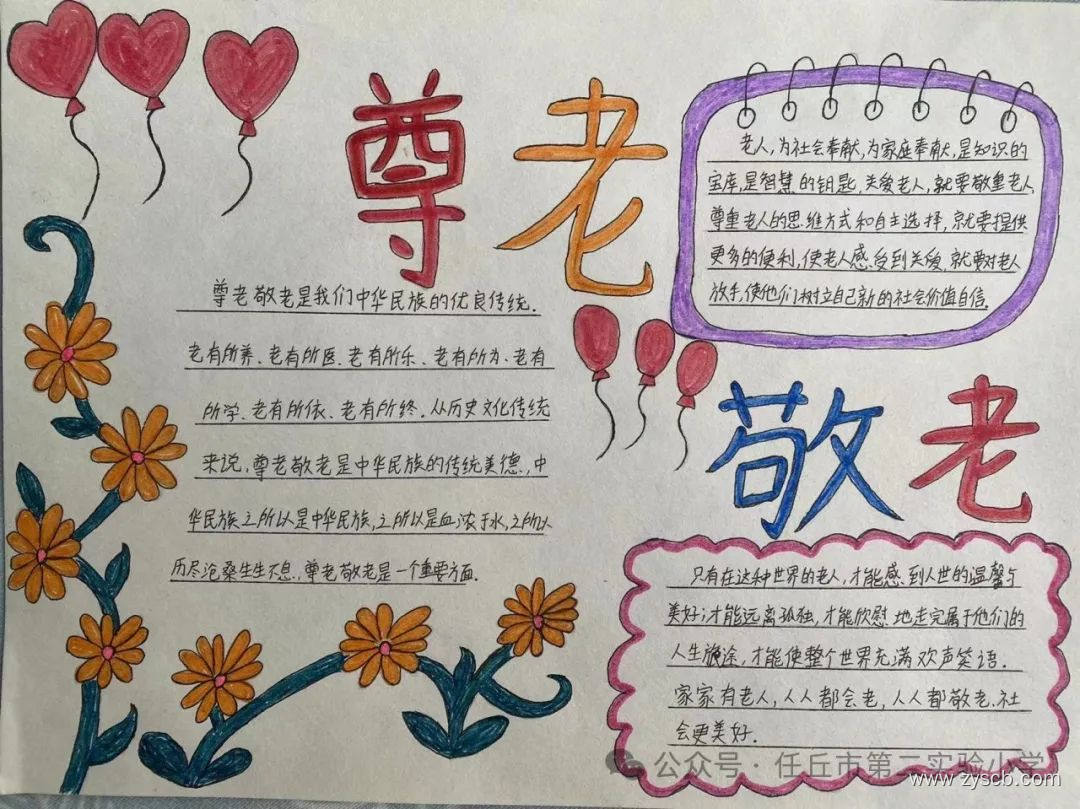 尊老
尊老敬老是我们中华民族的优良传统.
老有所养、老有所医、老有所乐、老有所为、老有
所学、老有所依、老有所终.从历史文化传统
来说,尊老敬老是中华民族的传统美德.,中
华民族之所以是中华民族,之所以是血浓于水,之所以
历尽沧桑生生不息.,尊老敬老是一个重要方面.
老人,为社会奉献,为家庭奉献,是知识的
宝库,是智慧的钥匙.关爱老人,就要敬重老人,
尊重老人的思维方式和自主选择,就要提供
更多的便利,使老人感受到关爱,就要对老人
放手,使他们树立自己新的社会价值自信.
敬老
只有在这种世界的老人,才能感到人世的温馨与
美好;才能远离孤独,才能欣慰地走完属于他们的
人生旅途,才能使整个世界充满欢声笑语.
家家有老人,人人都会老,人人都敬老.社
会更美好.
公众号·任丘市第二实验小学
www.zyscb.com